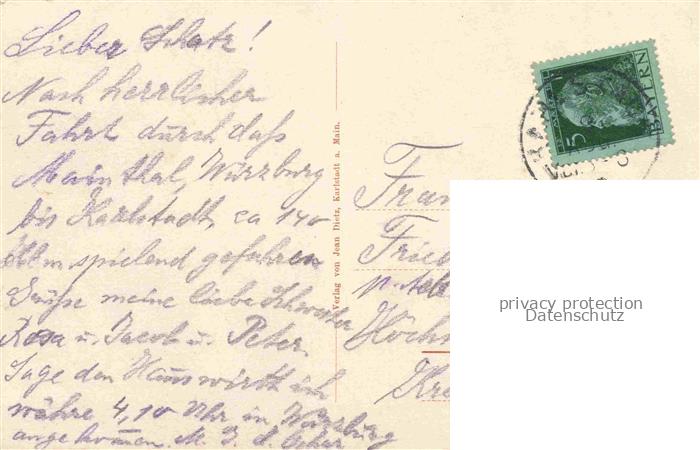 Lieber Schatz!
Nach herrlicher
Fahrt durch daß
Mainthal, Würzburg
bis Karlstadt, ca 140
Klm spielend gefahren
Grüße meine liebe Schwester
Rosa u. Jacob u. Peter.
Sage den Hauswirth ich
währe 4,10 Uhr in Würzburg
angekommen. M. G. d.
Verlag von Jean Dietz, Karlstadt a. Main.
5
BAYERN
Fran
Fried
Höchs
Kre
privacy protection
Datenschutz